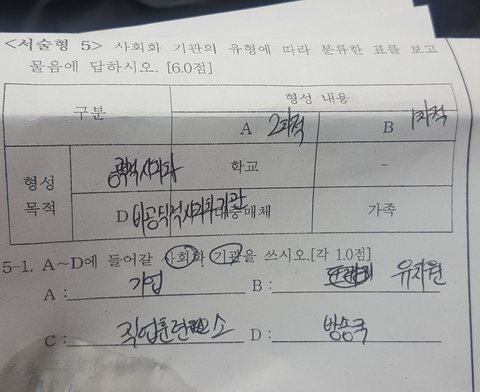 <서술형 5> 사회화 기관의 유형에 따라 분류한 표를 보고
물음에 답하시오. [6.0점]
구분 형성 내용
A 2차적 B 1차적
형성 목적 공식적 사회화 학교 -
D 비공식적 사회화 기관 대중매체 가족
5-1. A~D에 들어갈 사회화 기관을 쓰시오.[각 1.0점]
A : 기업 B : 유치원
C : 직업훈련소 D : 방송국